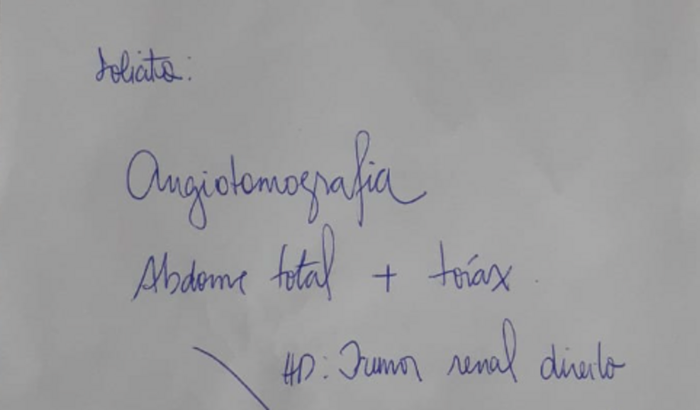 Solicito:
Angiotomografia
Abdome total + tórax
HD: Tumor renal direito